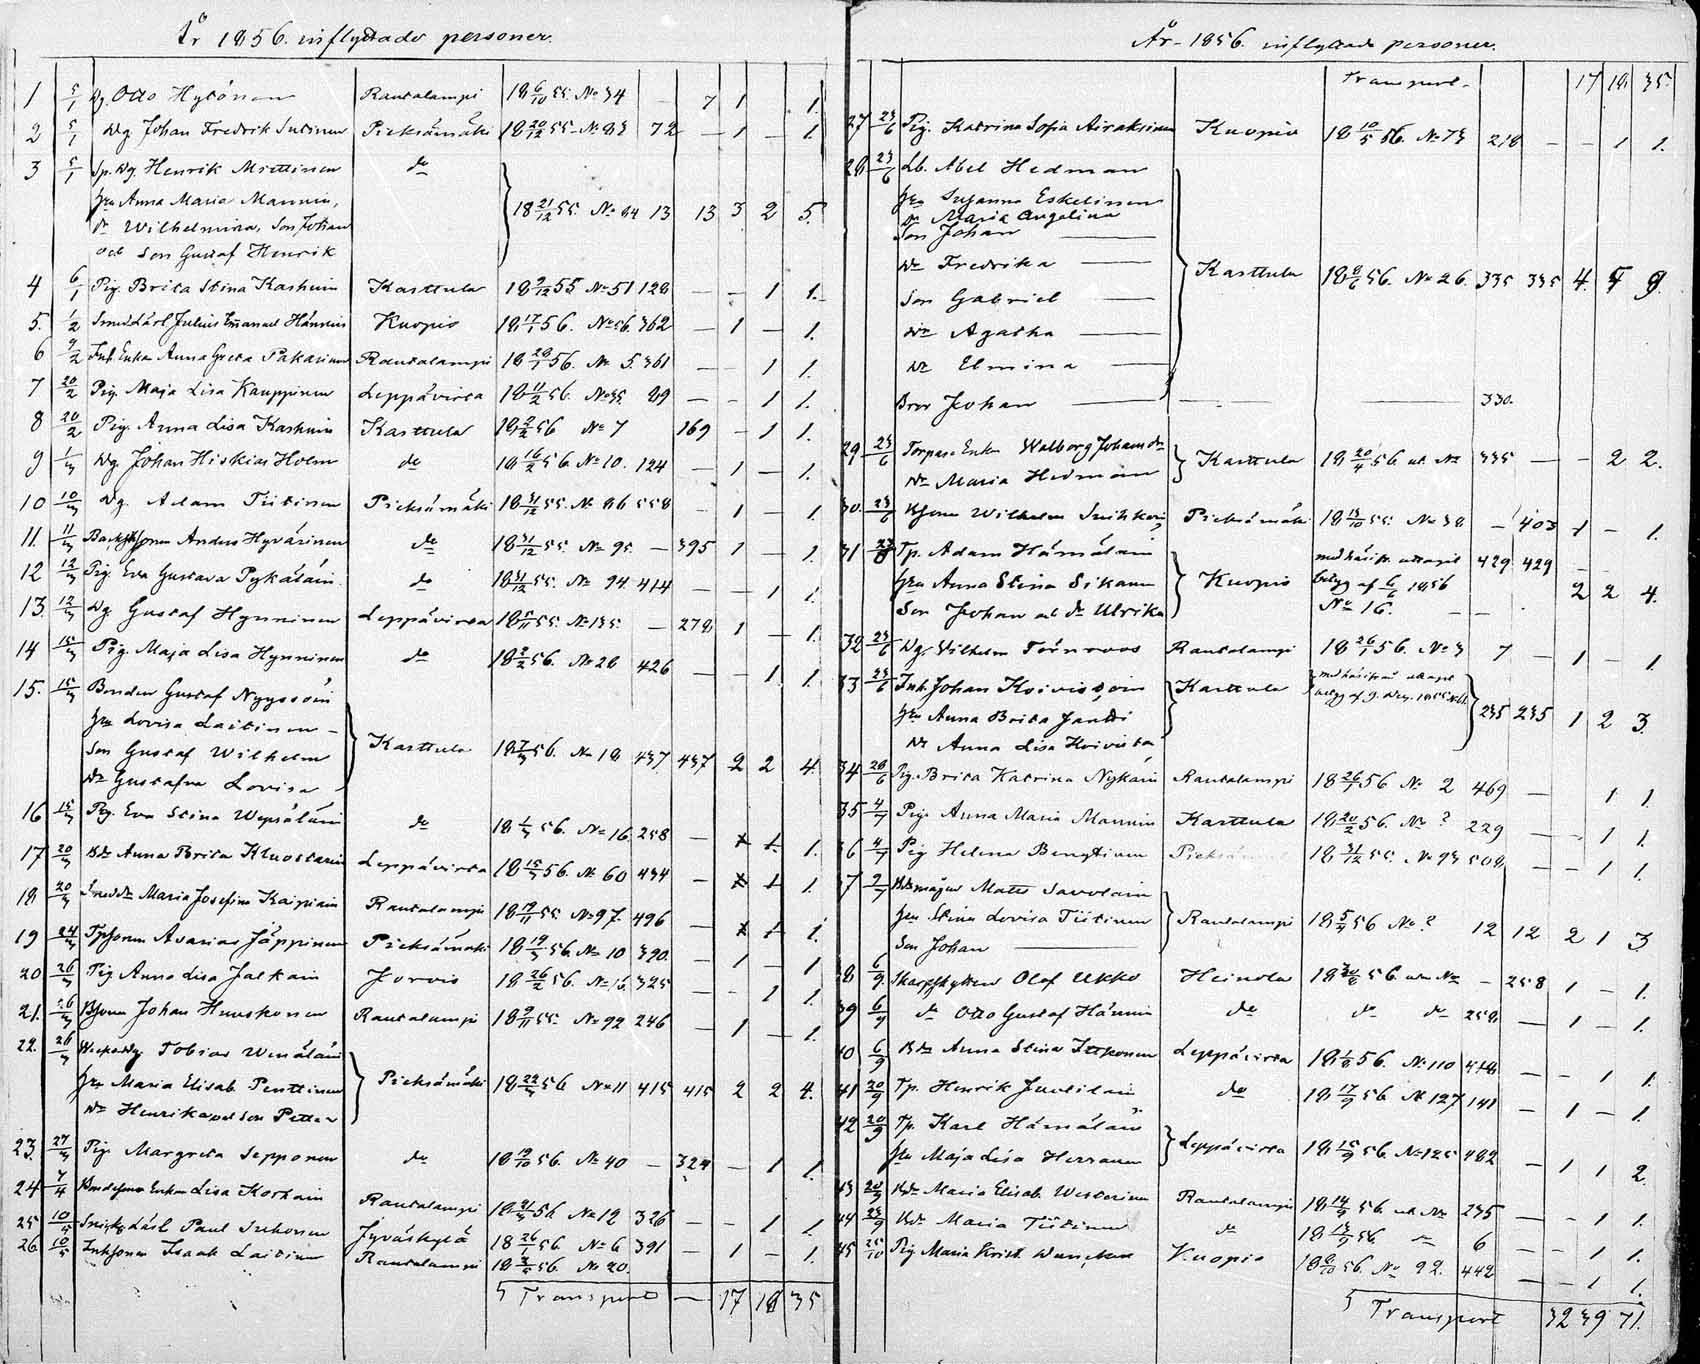 År 1856. inflyttade personer.
1 5/1 Dg. Otto Hytönen Rautalampi 18 6/10 55. No 34 — 7 1 1.
2 5/1 Dg Johan Fredrik Sutinen Pieksämäki 18 20/12 55. No 83 72 — 1 — 1.
3 5/1 Sp. Dg. Henrik Miettinen do
hu Anna Maria Mannin,
dr Wilhelmina, Son Johan 18 21/12 55. No 84 13 13 3 2 5.
och Son Gustaf Henrik
4 6/1 Pig. Brita Stina Kashuin Karttula 18 9/12 55 No 51 128 — — 1 1.
5. 1/2 Smed Lärl Julius Emanuel Hännin Kuopio 18 17/1 56. No 86. 362 — 1 — 1.
6 9/2 Inh. Enk. Anna Greta Pakarinen Rautalampi 18 28/1 56. No 5. 361 — — 1 1.
7 20/2 Pig. Maja Lisa Kauppinen Leppävirta 18 11/2 56. No 35 89 — — 1 1.
8 20/2 Pig. Anna Lisa Kashuin Karttula 18 2/2 56 No 7 169 — 1 1.
9 1/3 Dg. Johan Hiskias Holm do 18 16/2 56. No 10. 124 — 1 — 1.
10 10/3 Dg. Adam Tiitinen Pieksämäki 18 31/12 55. No 86 558 — 1 — 1.
11. 11/3 Anders Hyvärinen do 18 31/12 55. No 95. — 395 1 — 1.
12 12/3 Pig. Eva Gustava Pykäläin do 18 31/12 55. No 94 414 — — 1 1.
13. 12/3 Dg Gustaf Hynninen Leppävirta 18 5/11 55. No 135. — 278 1 — 1.
14 15/3 Pig. Maja Lisa Hynninen do 18 2/2 56. No 26 426 — — 1 1.
15. 15/3 Bonden Gustaf Nyyssöin
hu Lovisa Laitinen
Son Gustaf Wilhelm Karttula 18 7/3 56. No 18 437 437 2 2 4.
dr Gustafva Lovisa
16 15/3 Pig. Eva Stina Wepsäläin do 18 1/3 56. No 16. 258 — 1 1.
17 20/3 Anna Brita Kuostarin Leppävirta 18 15/3 56. No 60 434 — 1 1.
18 20/3 Maria Josefina Kaipiain Rautalampi 18 19/11 55 No 97. 496 — 1 1.
19 24/3 Tpsonen Asarias Jäppinen Pieksämäki 18 19/3 56. No 10 390. — 1 — 1.
20 26/3 Pig Anna Lisa Jalkain Jorois 18 26/2 56. No 16 325 — — 1 1.
21. 26/3 Bsonen Johan Huuskonen Rautalampi 18 9/11 55. No 92 246 — 1 — 1.
22. 26/3 Tobias Wenäläin
hu Maria Elisab. Penttinen Pieksämäki 18 22/3 56 No 11 415 415 2 2 4.
dr Henrika och Son Petter
23. 27/3 Pig. Margreta Sepponen do 18 19/10 56. No 40 — 324 — 1 1.
24 7/4 Lisa Korhoin Rautalampi 18 21/3 56. No 12 326 — — 1 1.
25 10/5 Paul Suhonen Jyväskylä 18 26/1 56. No 6 391 — 1 — 1.
26. 10/5 Isaak Laitinen Rautalampi 18 3/5 56. No 20.
Transport — 17 18 35
År 1856. inflyttade personer.
Transport. 17 18 35.
27 23/6 Pig. Katrina Sofia Airaksinen Kuopio 18 10/5 56. No 73 218 — — 1 1.
28 23/6 Lb. Abel Hedman
hu Susanna Eskelinen
dr Maria Angelina
Son Johan —
dr Fredrika — Karttula 18 8/6 56. No 26. 335 335 4. 5 9.
Son Gabriel —
dr Agatha —
dr Elmina —
Bror Johan — — — 330.
29 23/6 Torpare Enk. Walborg Johansdr Karttula 18 20/4 56 ut. No 335 — — 2 2.
dr Maria Hedman
30. 23/6 Bsonen Wilhelm Pieksämäki 18 13/10 55. No 38 — 403 1 — 1.
31 23/6 Tp. Adam Hämäläin 429 429
hu Anna Stina Sikanen Kuopio betyg af 6/6 1856 2 2 4.
Son Johan och dr Ulrika No 16.
32 23/6 Dg. Wilhelm Törnroos Rautalampi 18 26/1 56. No 3 7 — 1 — 1
33 23/6 Inh. Johan Koivistoin Karttula
hu Anna Brita Jantti 235 235 1 2 3.
dr Anna Lisa Koivistoin
34 28/6 Pig. Brita Katrina Nykäin Rautalampi 18 26/1 56 No 2 469 — 1 1.
35 4/7 Pig. Anna Maria Mannin Karttula 18 20/2 56. No ? 229 — — 1 1.
36 4/7 Pig Helena Bengtinen Pieksämäki 18 31/12 55. No 93 508 — — 1 1.
37 9/7 Matts Savolain
hu. Stina Lovisa Tiitinen Rautalampi 18 5/4 56 No ? 12 12 2 1 3
Son Johan —
38 6/9 Skarpskytten Olof Ukko Heinola 18 30/8 56. utan No — 258 1 — 1.
39 6/9 do Otto Gustaf Hännin do do do 258 — 1 — 1.
40 6/9 Anna Stina Ittkonen Leppävirta 18 1/8 56. No 110 418 — — 1 1.
41 20/9 Tp. Henrik Juutilain do 18 17/9 56 No 127 141 — 1 — 1.
42 20/9 Tp. Karl Hämäläin
hu Maja Lisa Herranen Leppävirta 18 15/9 56 No 125 482 — 1 1 2.
43 20/9 Maria Elisab. Westerinen Rautalampi 18 14/9 56 ut. No 235 — — 1 1.
44 23/9 Maria Tiitinen do 18 13/9 56 6 — — 1 1.
45 25/10 Pig Maria Krist. Kuopio 18 8/10 56. No 92. 442 — — 1 1.
Transport 32 39 71.